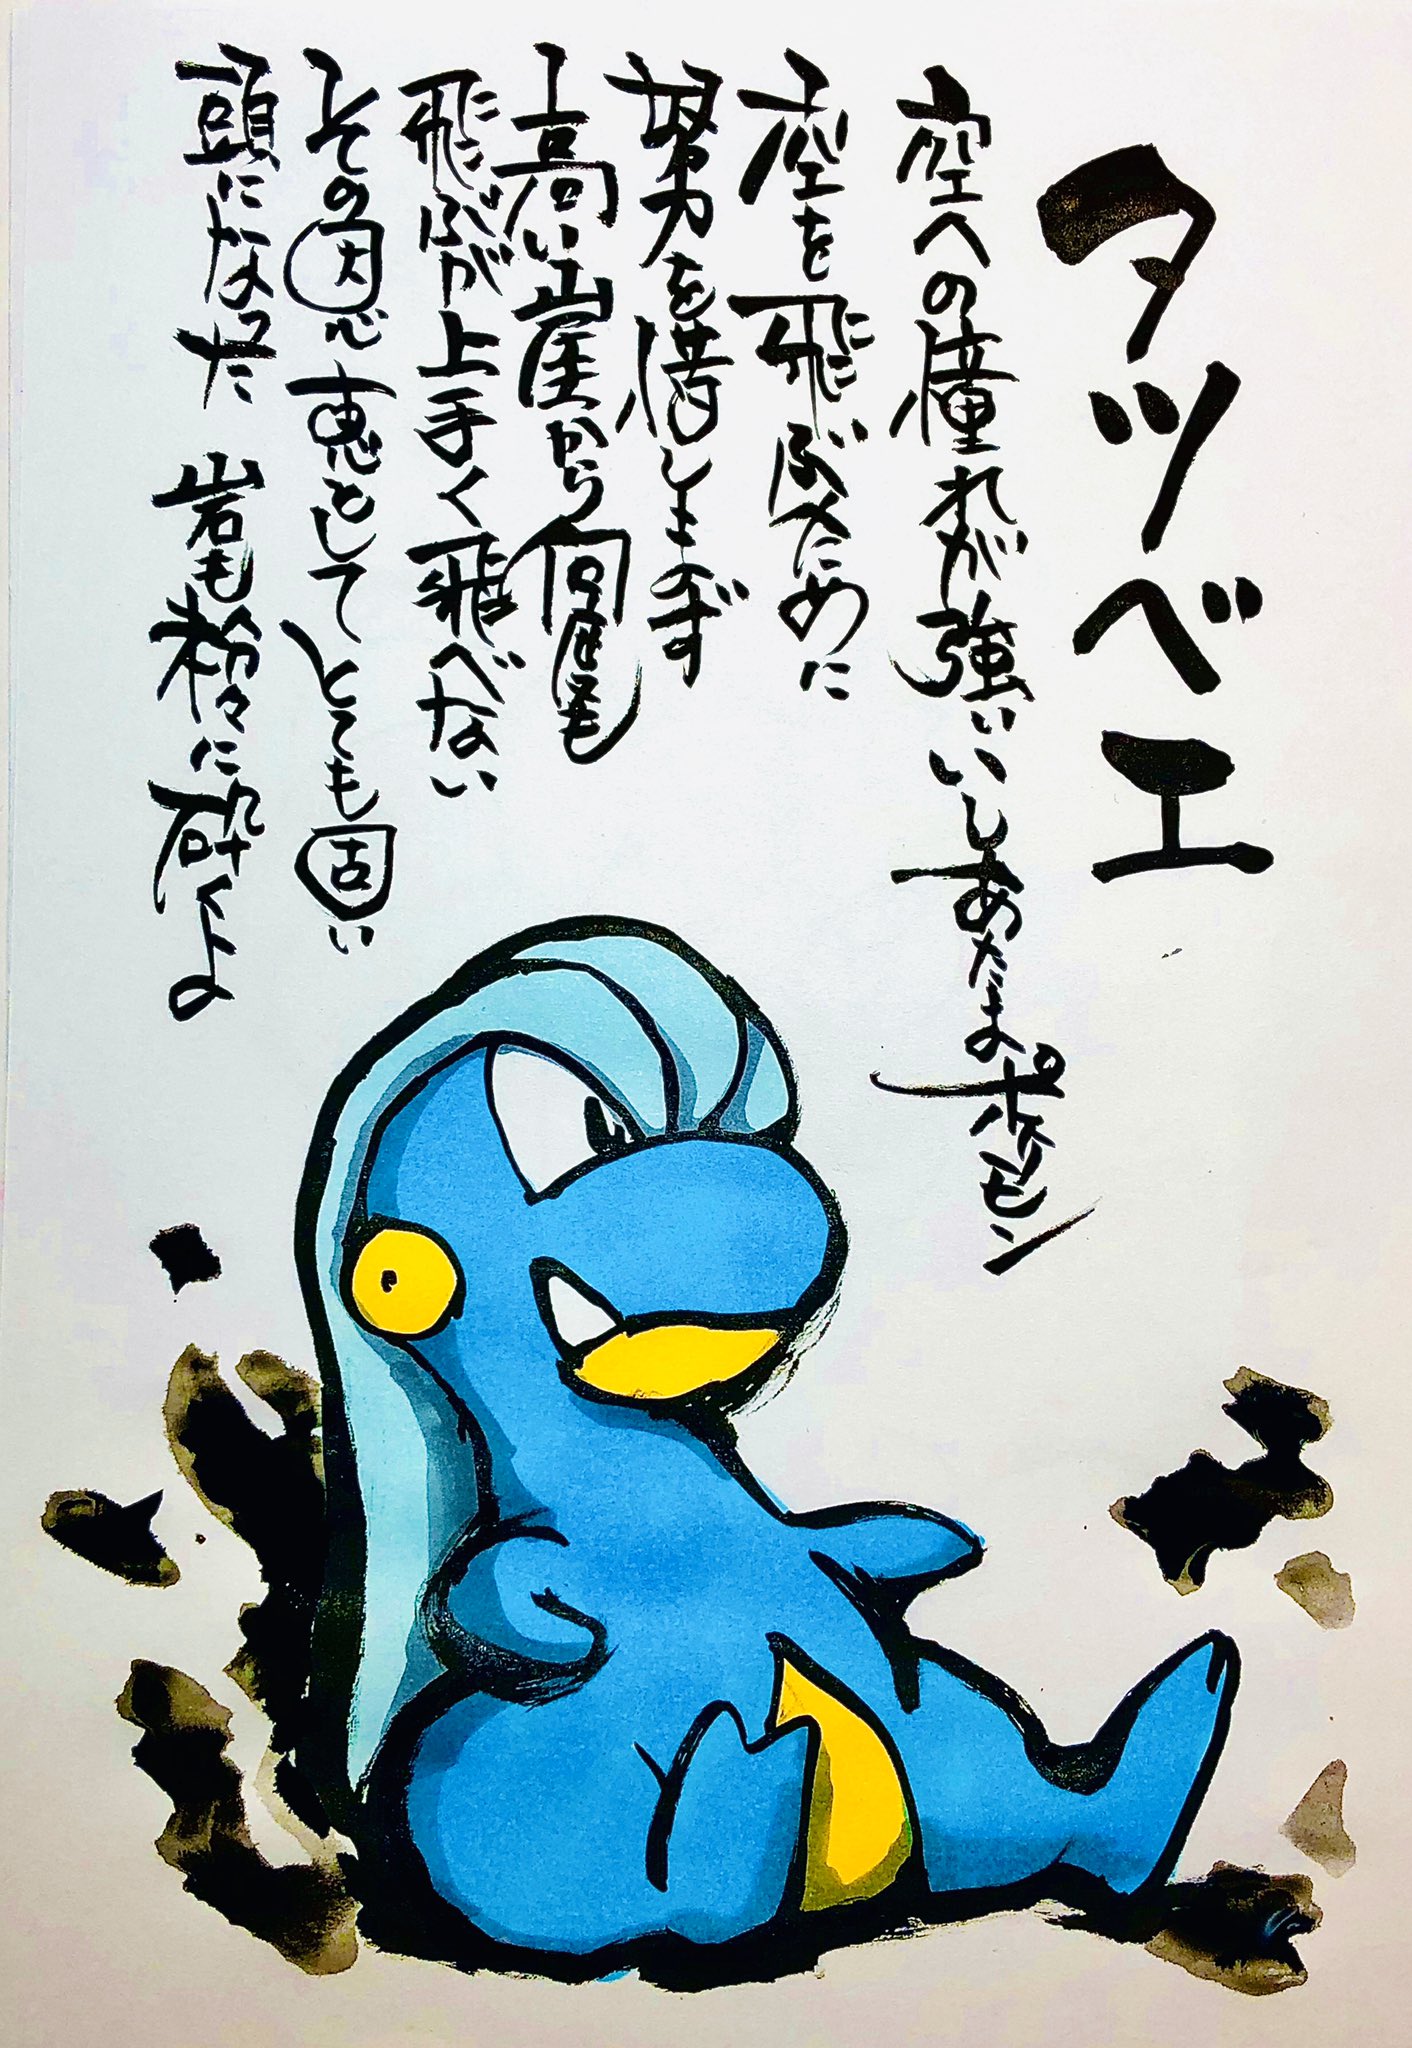 タツベエ
空への憧れが強いいしあたまポケモン
空を飛ぶために
努力を惜しまず
高い崖から何度も
飛ぶが上手く飛べない
その恩恵としてとても固い
頭になった 岩も粉々に砕くよ